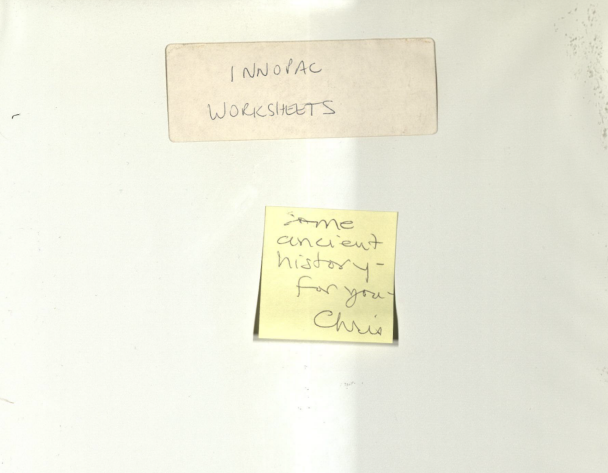 INNOPAC
WORKSHEETS
some
ancient
history-
for you-
Chris